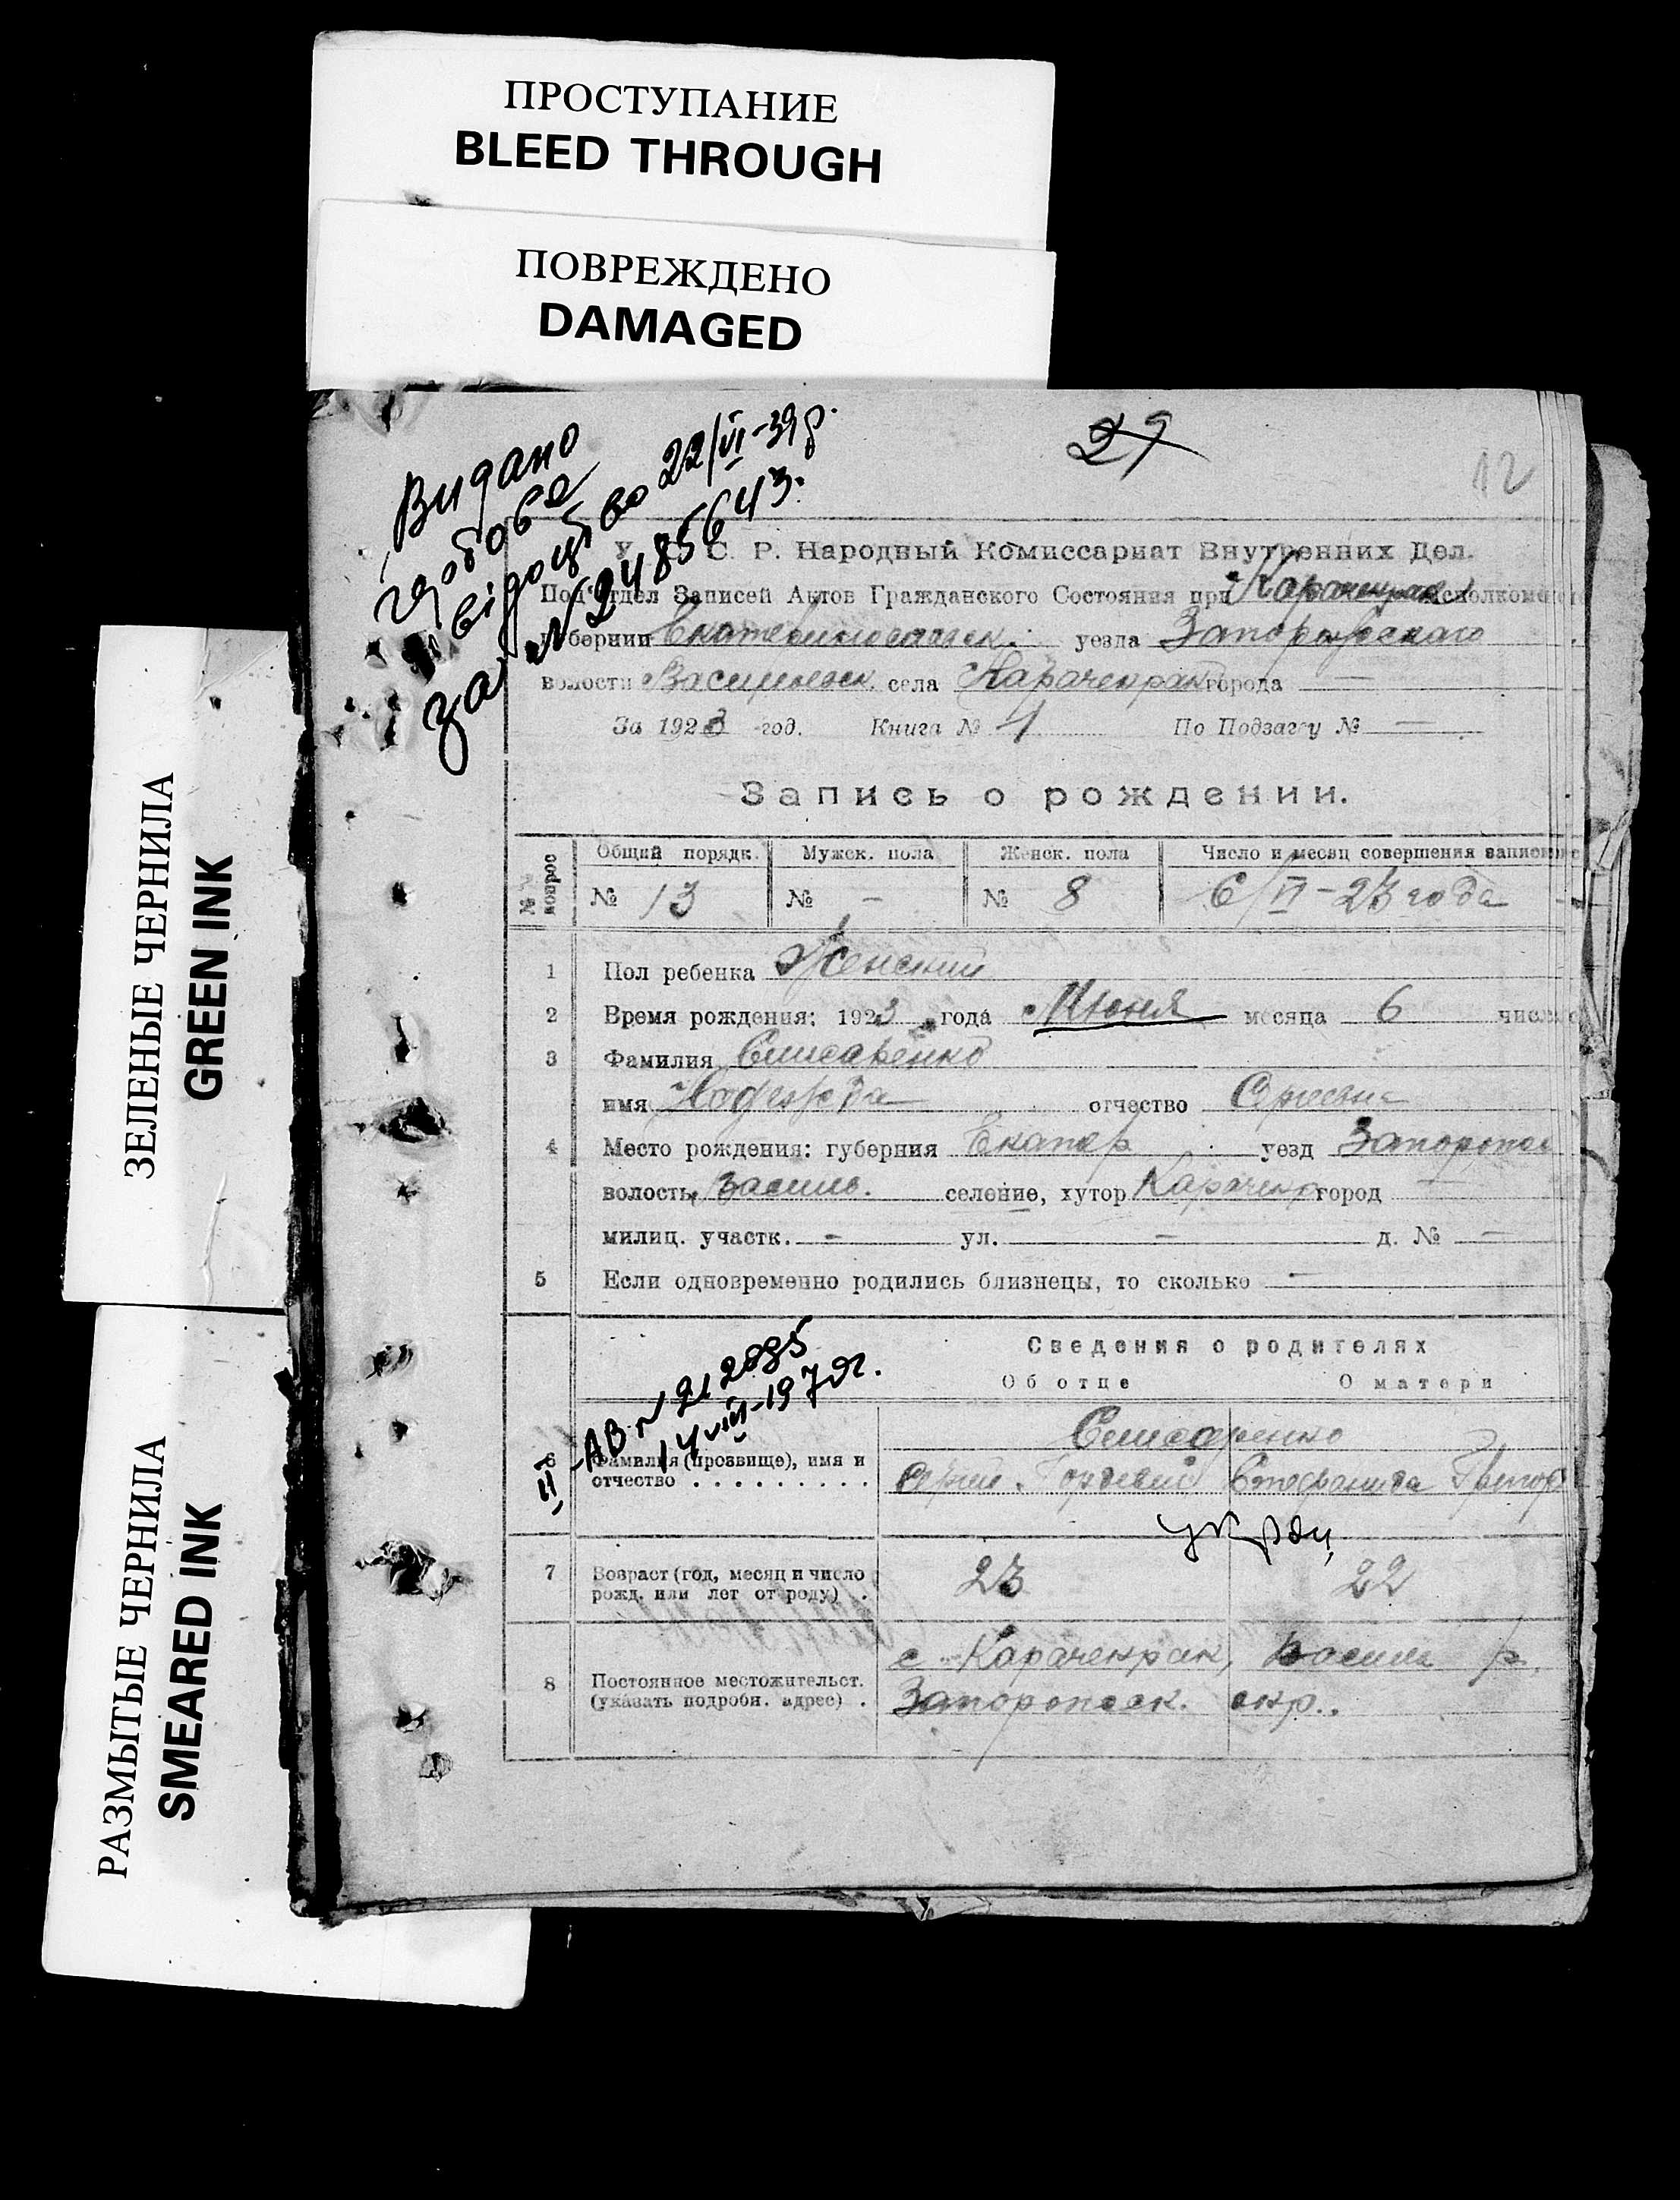 ПРОСТУПАНИЕ
BLEED THROUGH
ПОВРЕЖДЕНО
DAMAGED
ЗЕЛЕНЫЕ ЧЕРНИЛА
GREEN INK
РАЗМЫТЫЕ ЧЕРНИЛА
SMEARED INK
Видано
22/VI-39р.
за №2485643.
29
12
У. С. Р. Народный Комиссариат Внутренних Дел.
Под'отдел Записей Актов Гражданского Состояния при
губернии уезда Запорожскаго
волости села Караченрак города —
За 1923 год. Книга № 1 По Подзагсу № —
Запись о рождении.
№№ вопрос Общий порядк. Мужск. пола Женск. пола Число и месяц совершения записи
№ 13 № - № 8 6/VI - 23 года
1 Пол ребенка Женский
2 Время рождения: 1923 года Июня месяца 6 число
3 Фамилия Слисаренко
имя отчество
4 Место рождения: губерния Екатер уезд
волость Василь. селение, хутор город —
милиц. участк. - ул. - д. № —
5 Если одновременно родились близнецы, то сколько -
Сведения о родителях
Об отце О матери
II-АВ № 212085
14 VIII-197 г.
Слисаренко
6 Фамилия (прозвище), имя и
отчество . . . . . . . . . Гордеевич Стефанида Григор
украи,
7 Возраст (год, месяц и число
рожд. или лет от роду) . 23 22
с. Караченрак, Василь р.
8 Постоянное местожительст.
(указать подробн. адрес) . окр..